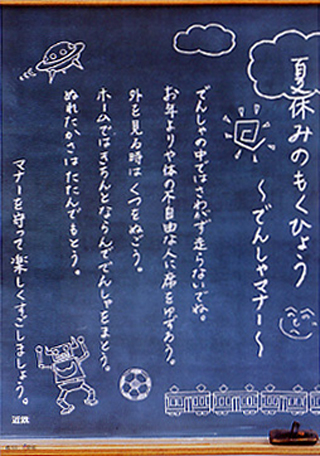 夏休みのもくひょう
～でんしゃマナー～
でんしゃの中ではさわがず走らないでね。
お年よりや体の不自由な人に席をゆずろう。
外を見る時はくつをぬごう。
ホームではきちんとならんででんしゃをまとう。
ぬれたかさはたたんでもとう。
マナーを守って楽しくすごしましょう。
近鉄